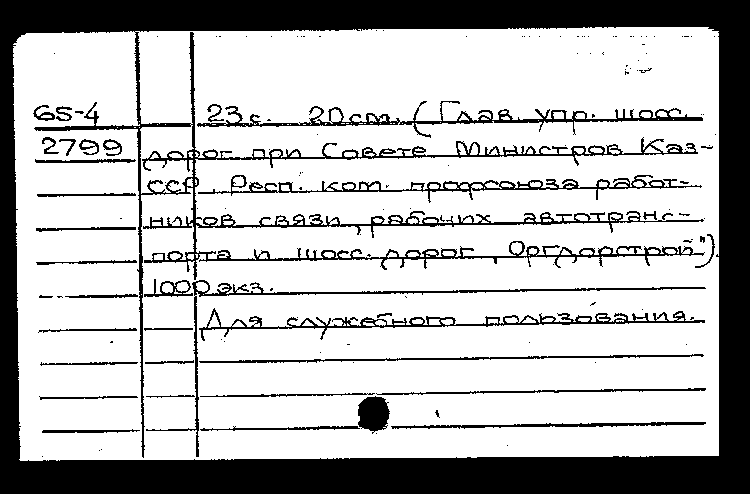 65-4 23 с. 20 см. (Глав. упр. шосс.
2799 дорог при Совете Министров Каз-
ССР, Респ. ком. профсоюза работ-
ников связи, рабочих автотранс-
порта и шосс. дорог, Оргдорстрой").
1000 экз.
Для служебного пользования.